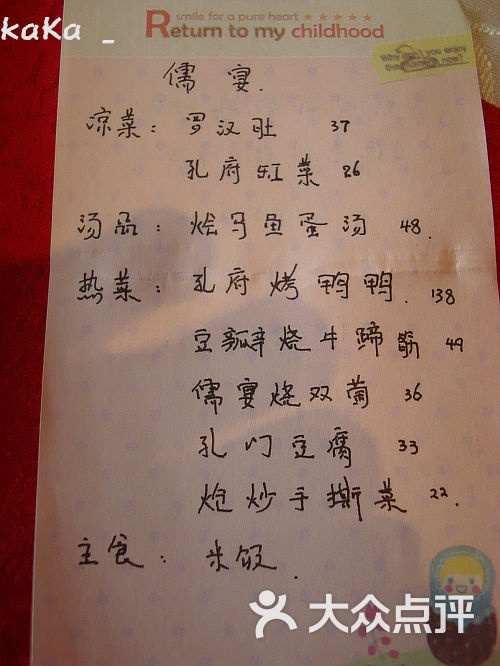 kaKa _
smile for a pure heart ★★★★★
Return to my childhood
Why don't you enjoy
the moment now?
儒宴.
凉菜: 罗汉肚 37
孔府缸菜 26
汤品: 烩乌鱼蛋汤 48.
热菜: 孔府烤鸭鸭. 138
豆瓣烧牛蹄筋 49
儒宴烧双菌 36
孔门豆腐 33
炝炒手撕菜 22.
主食: 米饭.
大众点评